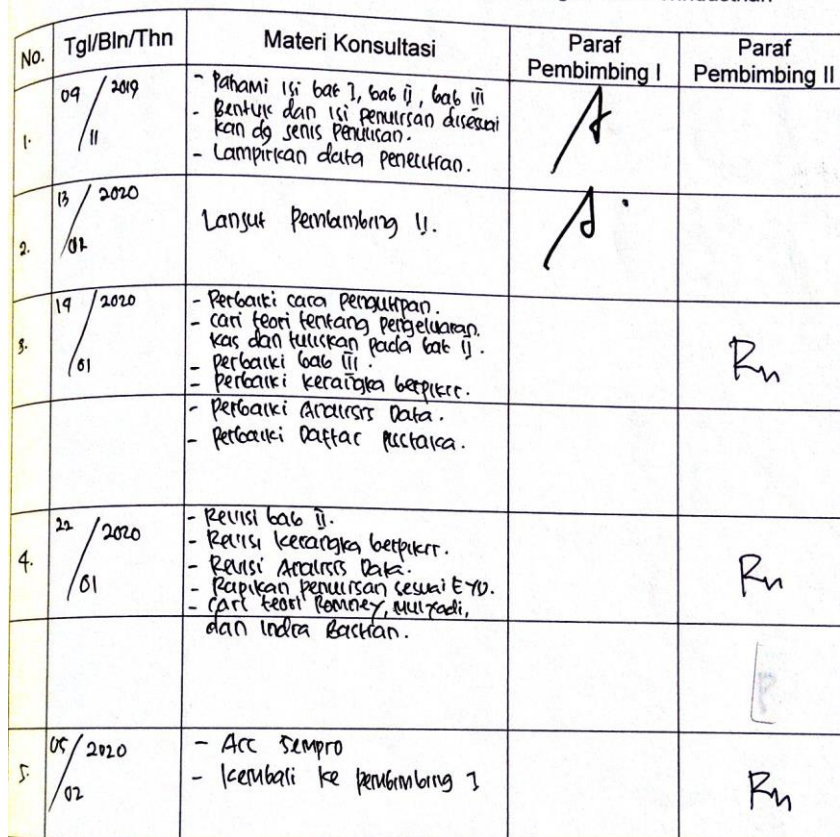 No. Tgl/Bln/Thn Materi Konsultasi Paraf Pembimbing I Paraf Pembimbing II
1. 09/11 2019
- Pahami isi bab I, bab II, bab III
- Bentuk dan isi penulisan disesuai
kan dg jenis penulisan.
- Lampirkan data penelitian.
2. 13/ 2020
Lanjut Pembimbing II.
3. 19/01 2020
- Perbaiki cara pengutipan.
- cari teori tentang pengeluaran
kas dan tuliskan pada bab II.
- perbaiki bab III.
- perbaiki kerangka berpikir.
- Perbaiki Analisis Data.
- Perbaiki Daftar pustaka.
Rn
4. 22/01 2020
- Revisi bab II.
- Revisi kerangka berpikir.
- Revisi Analisis Data.
- Rapikan penulisan sesuai EYD.
- Cari teori Romney, Mulyadi,
dan Indra Bastian.
Rn
5. 05/02 2020
- Acc Sempro
- Kembali ke pembimbing I
Rn